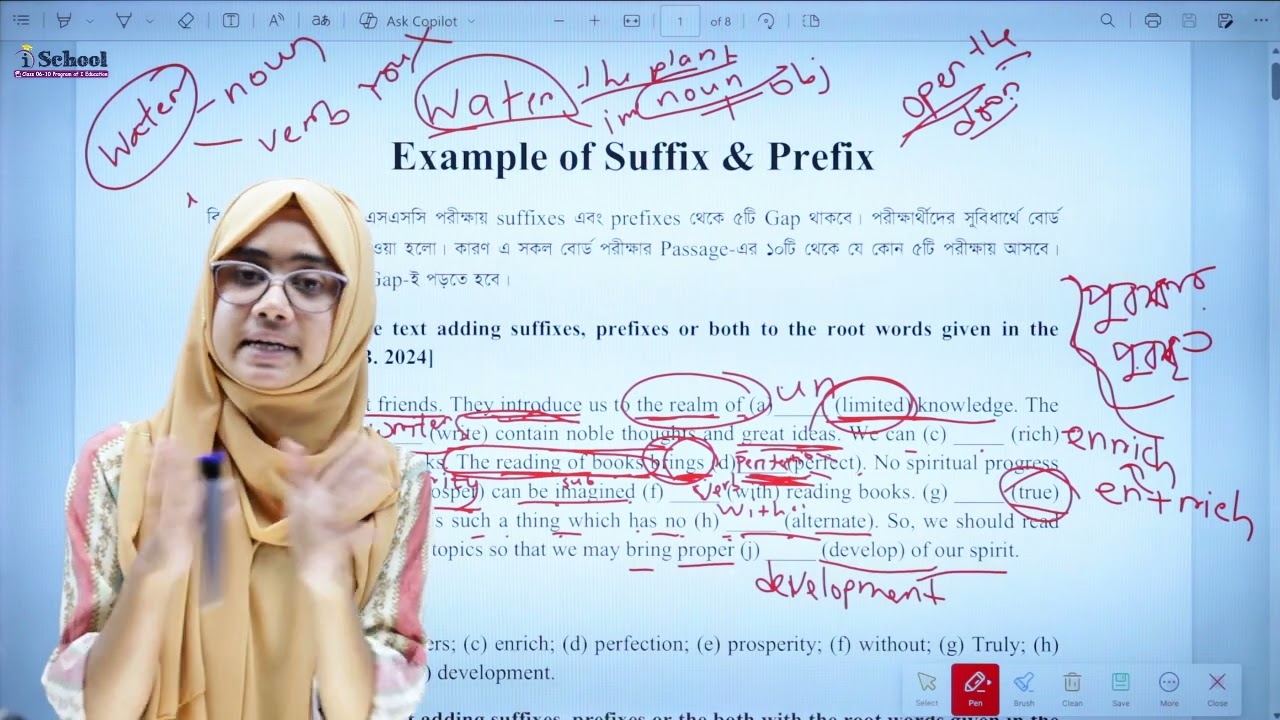 Ask Copilot
1 of 8
i School
Class 06-10 Program of I Education
Water noun
verb
root
Water the plant
noun obj
open the
door
Example of Suffix & Prefix
বি এসএসসি পরীক্ষায় suffixes এবং prefixes থেকে ৫টি Gap থাকবে। পরীক্ষার্থীদের সুবিধার্থে বোর্ড
ওয়া হলো। কারণ এ সকল বোর্ড পরীক্ষার Passage-এর ১০টি থেকে যে কোন ৫টি পরীক্ষায় আসবে।
Gap-ই পড়তে হবে।
পুরস্কার
e text adding suffixes, prefixes or both to the root words given in the
B. 2024]
un
t friends. They introduce us to the realm of (a) _____ (limited) knowledge. The
writers (write) contain noble thoughts and great ideas. We can (c) _____ (rich)
enrich
ks. The reading of books brings (d) (perfect). No spiritual progress
ity sub verb
osper) can be imagined (f) _____ (with) reading books. (g) _____ (true)
en+rich
s such a thing which has no (h) _____ (alternate). So, we should read
topics so that we may bring proper (j) _____ (develop) of our spirit.
development
ers; (c) enrich; (d) perfection; (e) prosperity; (f) without; (g) Truly; (h)
) development.
Select Pen Brush Clean Undo Save More Close
t adding suffixes, prefixes or the both with the root words given in the